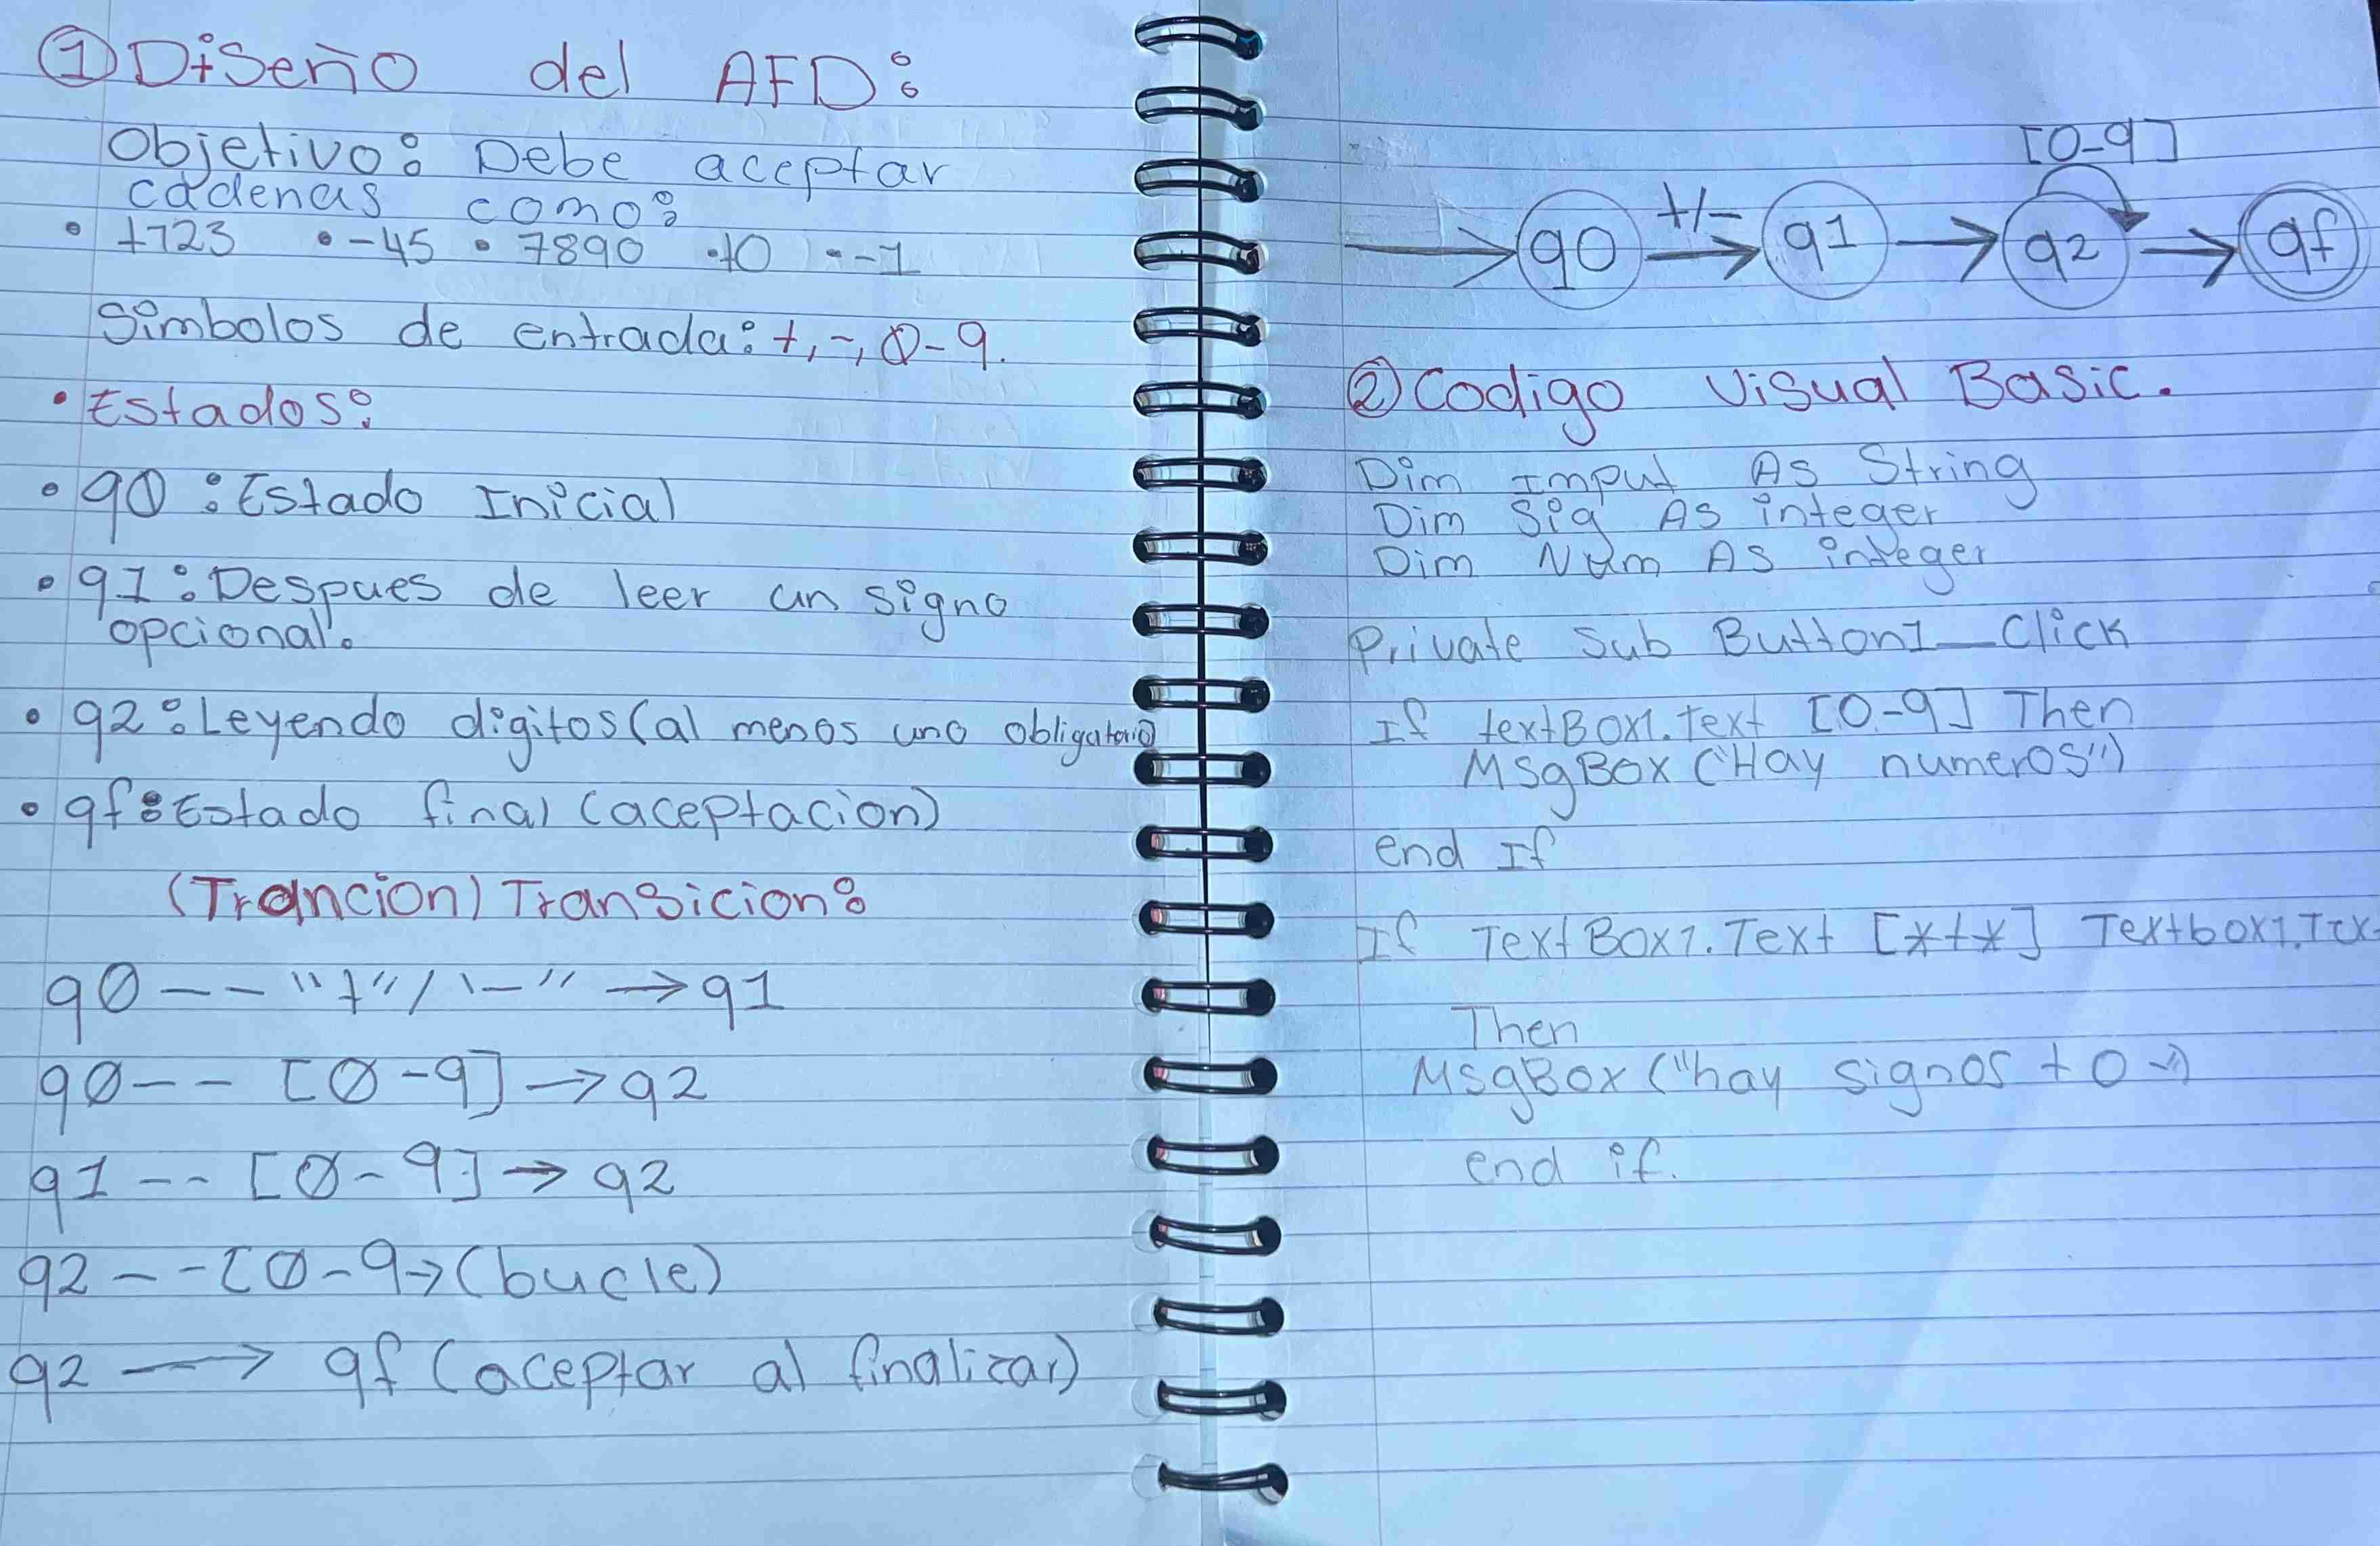 ① Diseño del AFD:
Objetivo: Debe aceptar
cadenas como:
• +723 • -45 • 7890 • +0 • -1
Simbolos de entrada: +, -, 0-9.
• Estados:
• q0: Estado Inicial
• q1: Despues de leer un signo
opcional.
• q2: Leyendo digitos (al menos uno obligatorio)
• qf: Estado final (aceptacion)
(Trancion) Transicion:
q0 -- "+"/"-" → q1
q0 -- [0-9] → q2
q1 -- [0-9] → q2
q2 -- [0-9 → (bucle)
q2 → qf (aceptar al finalizar)
[0-9]
→ q0 +/- → q1 → q2 → qf
② Codigo Visual Basic.
Dim Imput As String
Dim Sig As integer
Dim Num As integer
Private Sub Button1_Click
If textBox1.Text [0-9] Then
MsgBox ("Hay numeros")
end If
If TextBox1.Text [*+*] Textbox1.Tex
Then
MsgBox ("hay signos + o -")
end if.